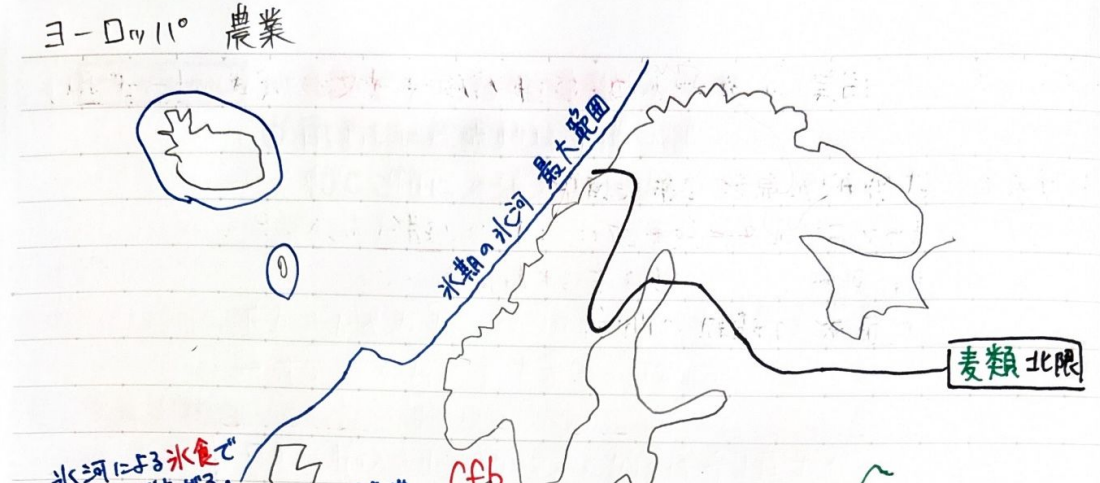 ヨーロッパ 農業
氷期の氷河 最大範囲
麦類北限
氷河による氷食で
Cfb